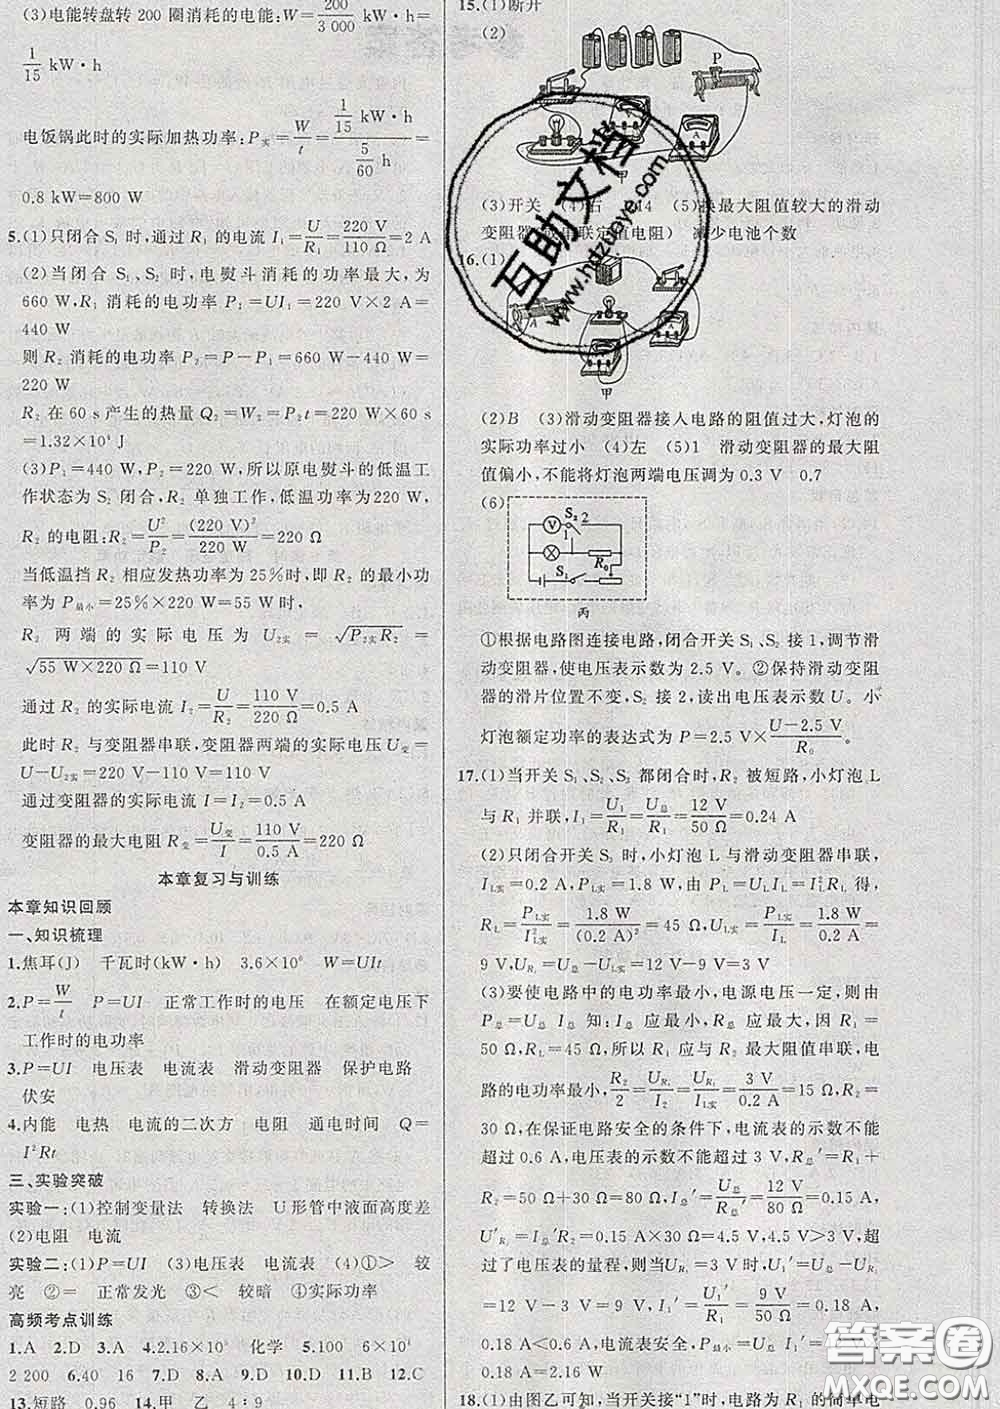 (3)电能转盘转 200 圈消耗的电能:W=200/3 000 kW·h=
1/15 kW·h
电饭锅此时的实际加热功率:P实=W/t=(1/15 kW·h)/(5/60 h)=
0.8 kW=800 W
5.(1)只闭合 S₁ 时,通过 R₁ 的电流 I₁=U/R₁=220 V/110 Ω=2 A
(2)当闭合 S₁、S₂ 时,电熨斗消耗的功率最大,为
660 W,R₁ 消耗的电功率 P₁=UI₁=220 V×2 A=
440 W
则 R₂ 消耗的电功率 P₂=P-P₁=660 W-440 W=
220 W
R₂ 在 60 s 产生的热量 Q₂=W₂=P₂t=220 W×60 s
=1.32×10⁴ J
(3)P₁=440 W,P₂=220 W,所以原电熨斗的低温工
作状态为 S₂ 闭合,R₂ 单独工作,低温功率为 220 W
R₂ 的电阻:R₂=U²/P₂=(220 V)²/220 W=220 Ω
当低温挡 R₂ 相应发热功率为 25%时,即 R₂ 的最小功
率为 P最小=25%×220 W=55 W 时,
R₂ 两端的实际电压为 U₂实=√(P₂实R₂)=
√(55 W×220 Ω)=110 V
通过 R₂ 的实际电流 I₂=U/R₂=110 V/220 Ω=0.5 A
此时 R₂ 与变阻器串联,变阻器两端的实际电压 U变=
U-U₂实=110 V
通过变阻器的实际电流 I=I₂=0.5 A
变阻器的最大电阻 R变=U变/I=110 V/0.5 A=220 Ω
本章复习与训练
本章知识回顾
一、知识梳理
1.焦耳(J) 千瓦时(kW·h) 3.6×10⁶ W=UIt
2.P=W/t P=UI 正常工作时的电压 在额定电压下
工作时的电功率
3.P=UI 电压表 电流表 滑动变阻器 保护电路
伏安
4.内能 电热 电流的二次方 电阻 通电时间 Q=
I²Rt
三、实验突破
实验一:(1)控制变量法 转换法 U 形管中液面高度差
(2)电阻 电流
实验二:(1)P=UI (3)电压表 电流表 (4)①> 较
亮 ②= 正常发光 ③< 较暗 ④实际功率
高频考点训练
1.A 2.D 3.A 4.2.16×10⁵ 化学 5.100 6×10⁴
2 200 6.40 16 7.D 8.A 9.D 10.D 11.B 12.C
13.短路 0.96 14.甲 乙 4∶9
15.(1)断开
(2)
P
A
(3)开关 (4)右 14 (5)换最大阻值较大的滑动
变阻器 减少电池个数
16.(1)
A
甲
(2)B (3)滑动变阻器接入电路的阻值过大,灯泡的
实际功率过小 (4)左 (5)1 滑动变阻器的最大阻
值偏小,不能将灯泡两端电压调为 0.3 V 0.7
(6)
V S₂ 2
1
R₀
S₁
丙
①根据电路图连接电路,闭合开关 S₁、S₂ 接 1,调节滑
动变阻器,使电压表示数为 2.5 V。②保持滑动变阻
器的滑片位置不变,S₂ 接 2,读出电压表示数 U。小
灯泡额定功率的表达式为 P=2.5 V×(U-2.5 V)/R₀。
17.(1)当开关 S₁、S₂、S₃ 都闭合时,R₂ 被短路,小灯泡 L
与 R₁ 并联,I₁=U₁/R₁=U总/R₁=12 V/50 Ω=0.24 A
(2)只闭合开关 S₃ 时,小灯泡 L 与滑动变阻器串联,
I_L实=0.2 A,P_L实=1.8 W,由 P_L=U_L I_L=I_L²R_L 得,
R_L=P_L实/I_L实²=1.8 W/(0.2 A)²=45 Ω,U_L实=P_L实/I_L=1.8 W/0.2 A=
9 V,U_R₂=U总-U_L实=12 V-9 V=3 V
(3)要使电路中的电功率最小,电源电压一定,则由
P总=U总 I总 知:I总 应最小,R总 应最大,因 R₁=
50 Ω,R_L=45 Ω,所以 R₁ 应与 R₂ 最大阻值串联,电
路的电功率最小,R₂/2=U_R₂/I₂=U_R₂/I_L实=3 V/0.2 A=15 Ω,R₂=
30 Ω,在保证电路安全的条件下,电流表的示数不能
超过 0.6 A,电压表示数不能超过 3 V,R总′=R₁+
R₂=50 Ω+30 Ω=80 Ω,I总′=U总/R总′=12 V/80 Ω=0.15 A,
U′_R₂=I总′R₂=0.15 A×30 Ω=4.5 V>3 V,超
过了电压表的量程,则当 U_R₂=3 V时,U₁′=U总-U_R₂
=12 V-3 V=9 V,I总″=U₁′/R₁=9 V/50 Ω=0.18 A
0.18 A<0.6 A,电流表安全,P最小=U总 I总″=12 V×
0.18 A=2.16 W
18.(1)由图乙可知,当开关接“1”时,电路为 R₁ 的简单电
互助文档
www.hdzuoye.com
答案圈
MXQE.COM